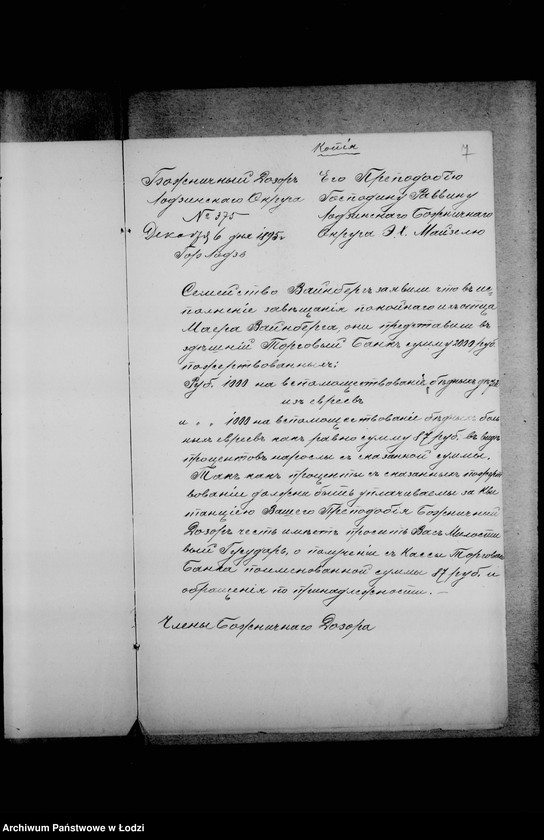 Копія
7
Божничный Дозоръ
Лодзинскаго Округа
№ 375
Декабря 6 дня 1895 г
Гор Лодзь
Его Преподобію
Господину Раввину
Лодзинскаго Божничнаго
Округа Э. Х. Майзелю
Семейство Вайнбергъ заявили что въ ис
полненіе завѣщанія покойнаго ихъ отца
Маера Вайнберга, они представили въ
здѣшній Торговый Банкъ сумму 2000 руб
пожертвованныхъ:
Руб. 1000 на вспомоществованіе бѣдныхъ
изъ евреевъ
и " " 1000 на вспомоществованіе бѣдныхъ боль
ныхъ евреевъ какъ равно сумму 87 руб. въ видѣ
процентовъ наросл съ сказанной суммы.
Такъ какъ проценты съ сказанныхъ пожерт
вованій должны быть уплачиваемы за кви
танціею Вашего Преподобія Божничный
Дозоръ честь имѣетъ просить Васъ Милости
вый Государь, о полученіи съ кассы Торговаго
Банка поименованной суммы 87 руб. и
обращенія по принадлежности. –
Члены Божничнаго Дозора
Archiwum Państwowe w Łodzi